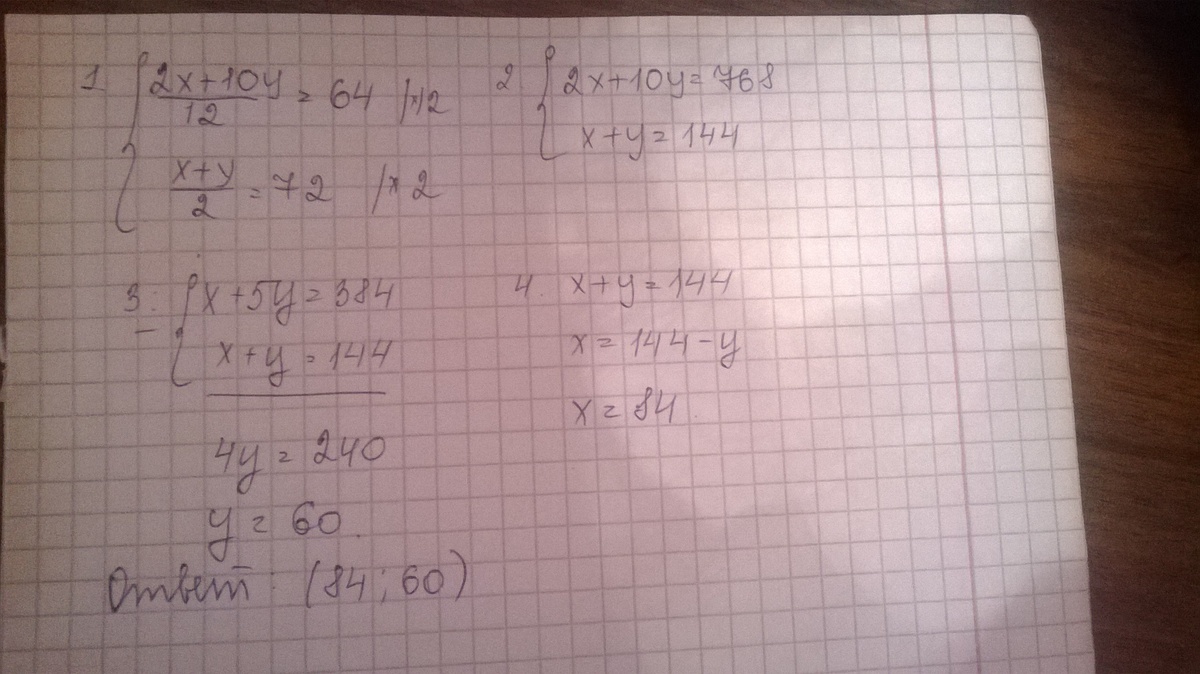 1. { (2x+10y)/12 = 64 |*12
(x+y)/2 = 72 |*2
2. { 2x+10y=768
x+y=144
3. { x+5y=384
x+y=144
4y=240
y=60.
4. x+y=144
x=144-y
x=84.
Ответ: (84;60)